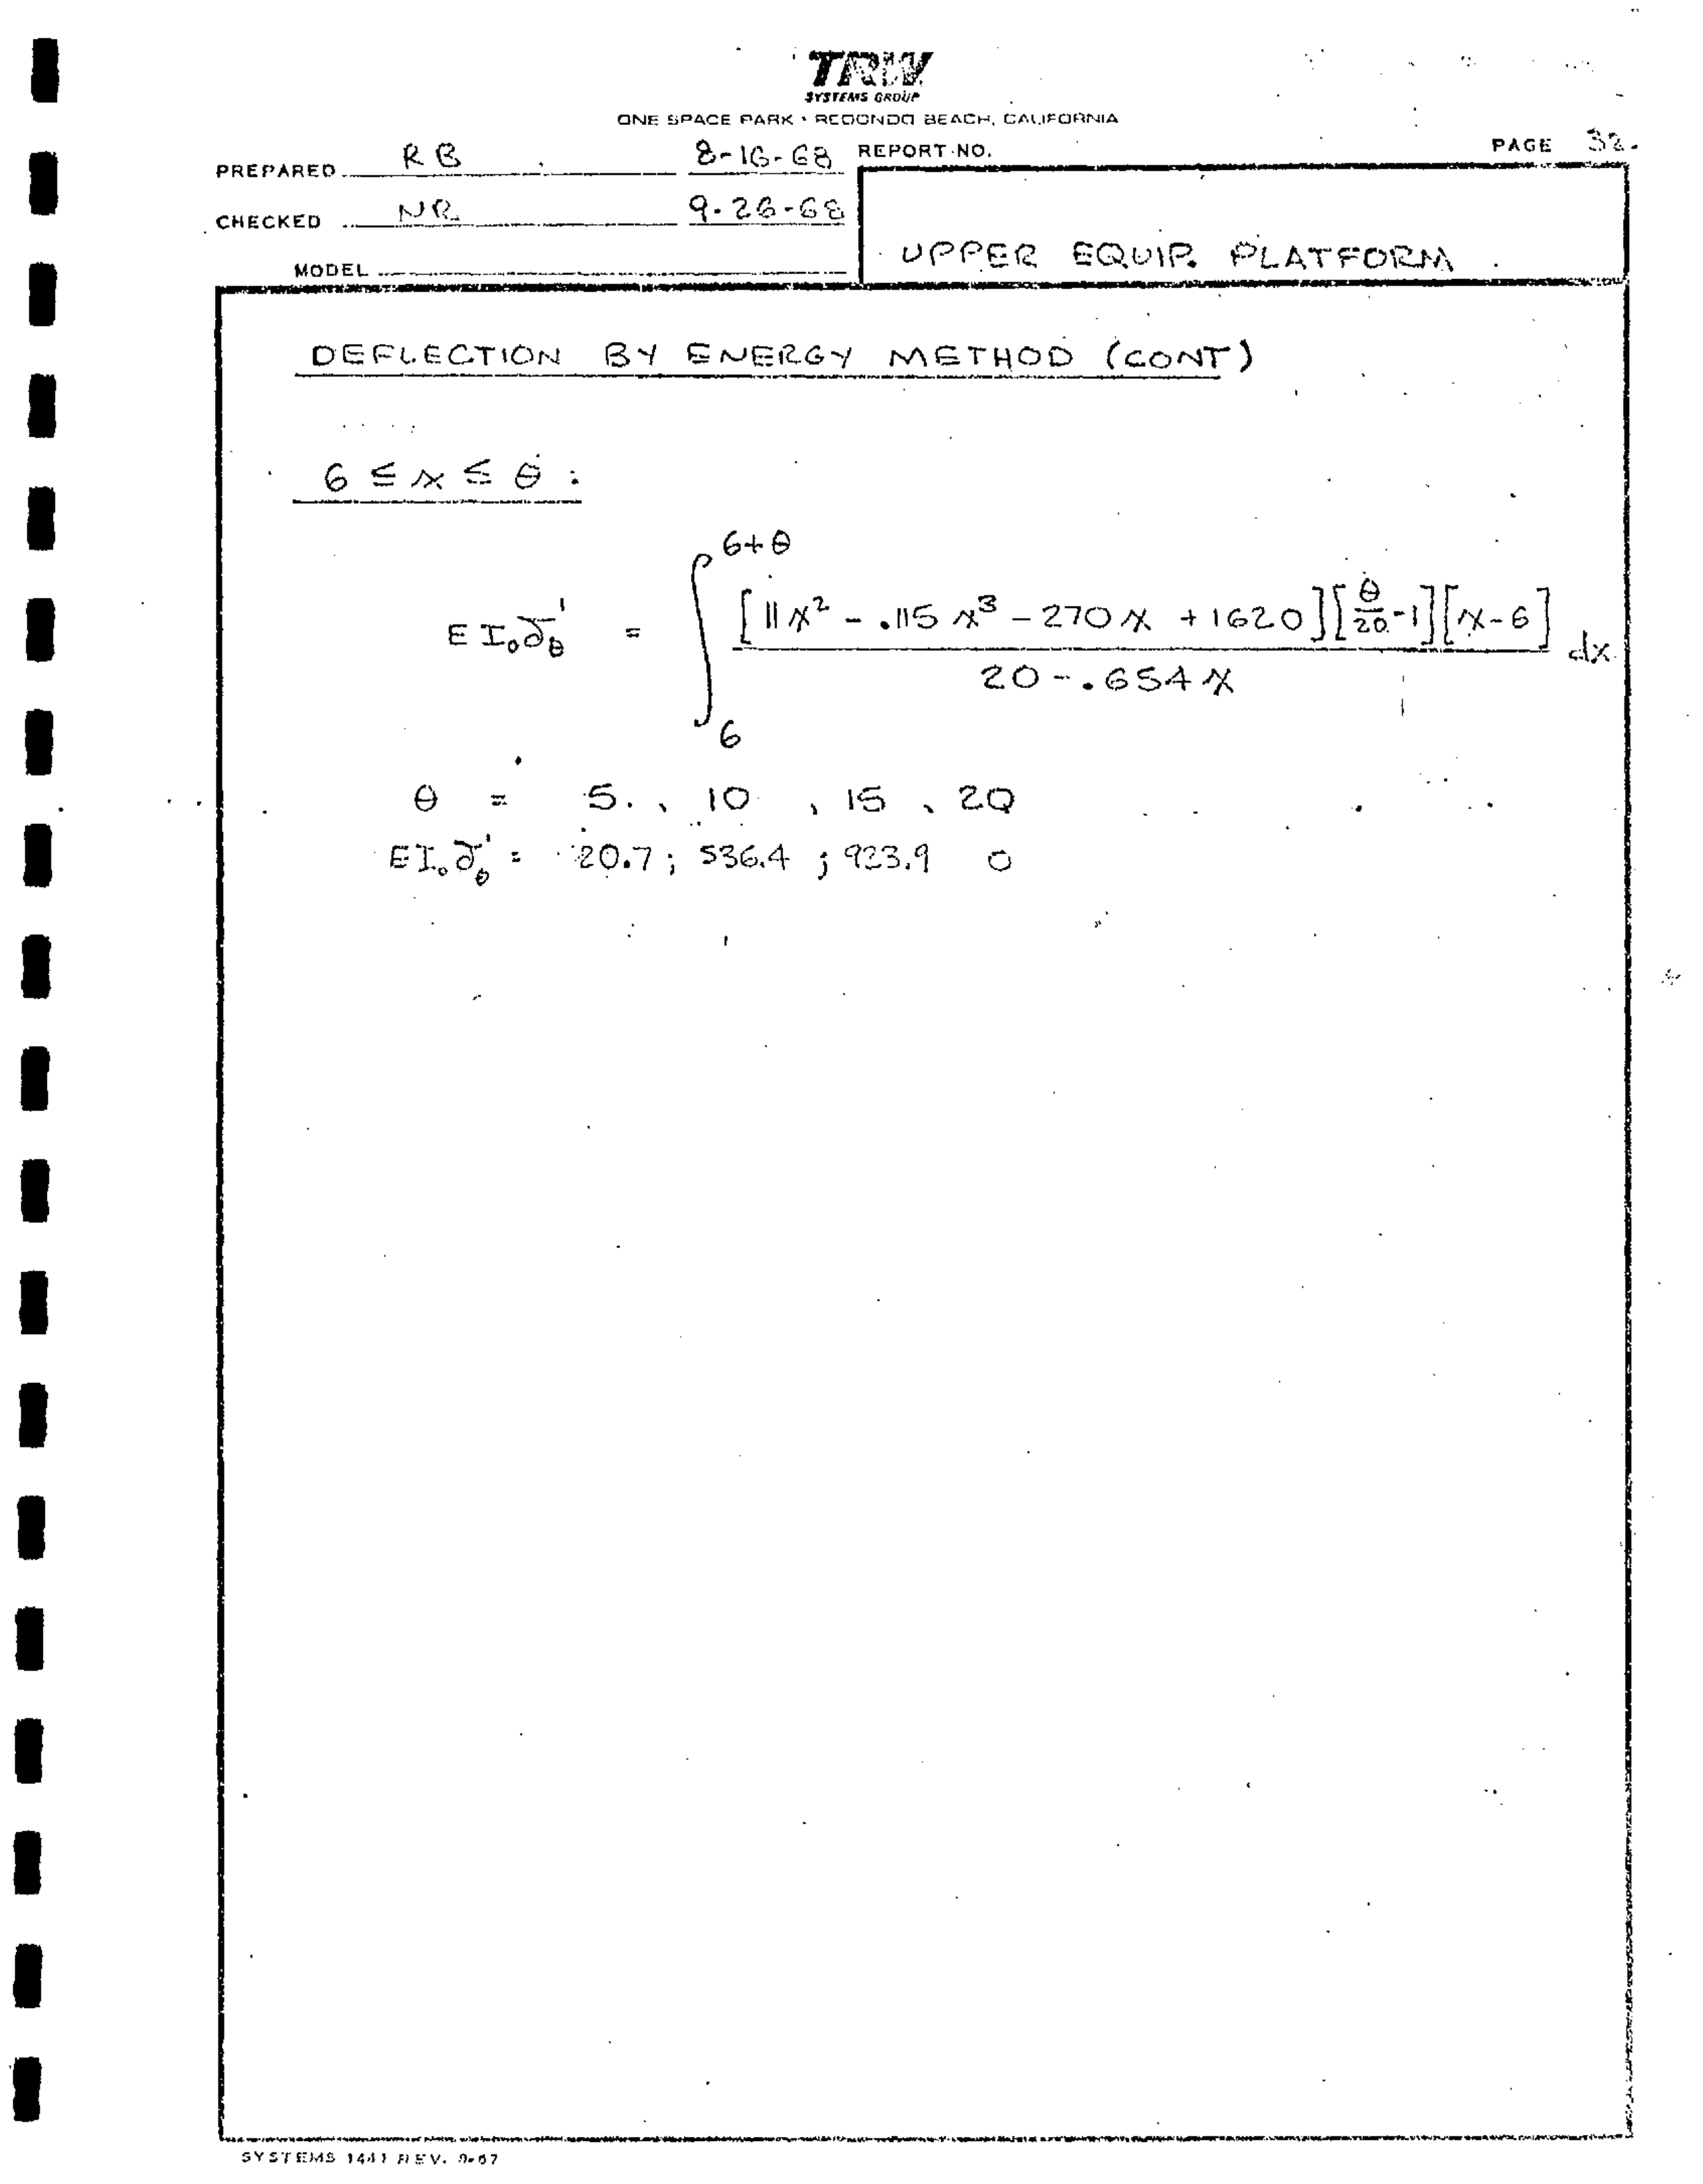 TRW
SYSTEMS GROUP
ONE SPACE PARK • REDONDO BEACH, CALIFORNIA
PREPARED RB 8-16-68 REPORT NO. PAGE 32.
CHECKED NR 9-26-68
MODEL
UPPER EQUIP. PLATFORM
DEFLECTION BY ENERGY METHOD (CONT)
6 ≤ x ≤ θ :
E I₀ δ'_θ = ∫₆^{6+θ} [11x² - .115x³ - 270x + 1620][θ/20 - 1][x-6] / (20 - .654x) dx
θ = 5. , 10 , 15 , 20
E I₀ δ'_θ = 20.7 ; 536.4 ; 923.9 0
SYSTEMS 1441 REV. 9-67